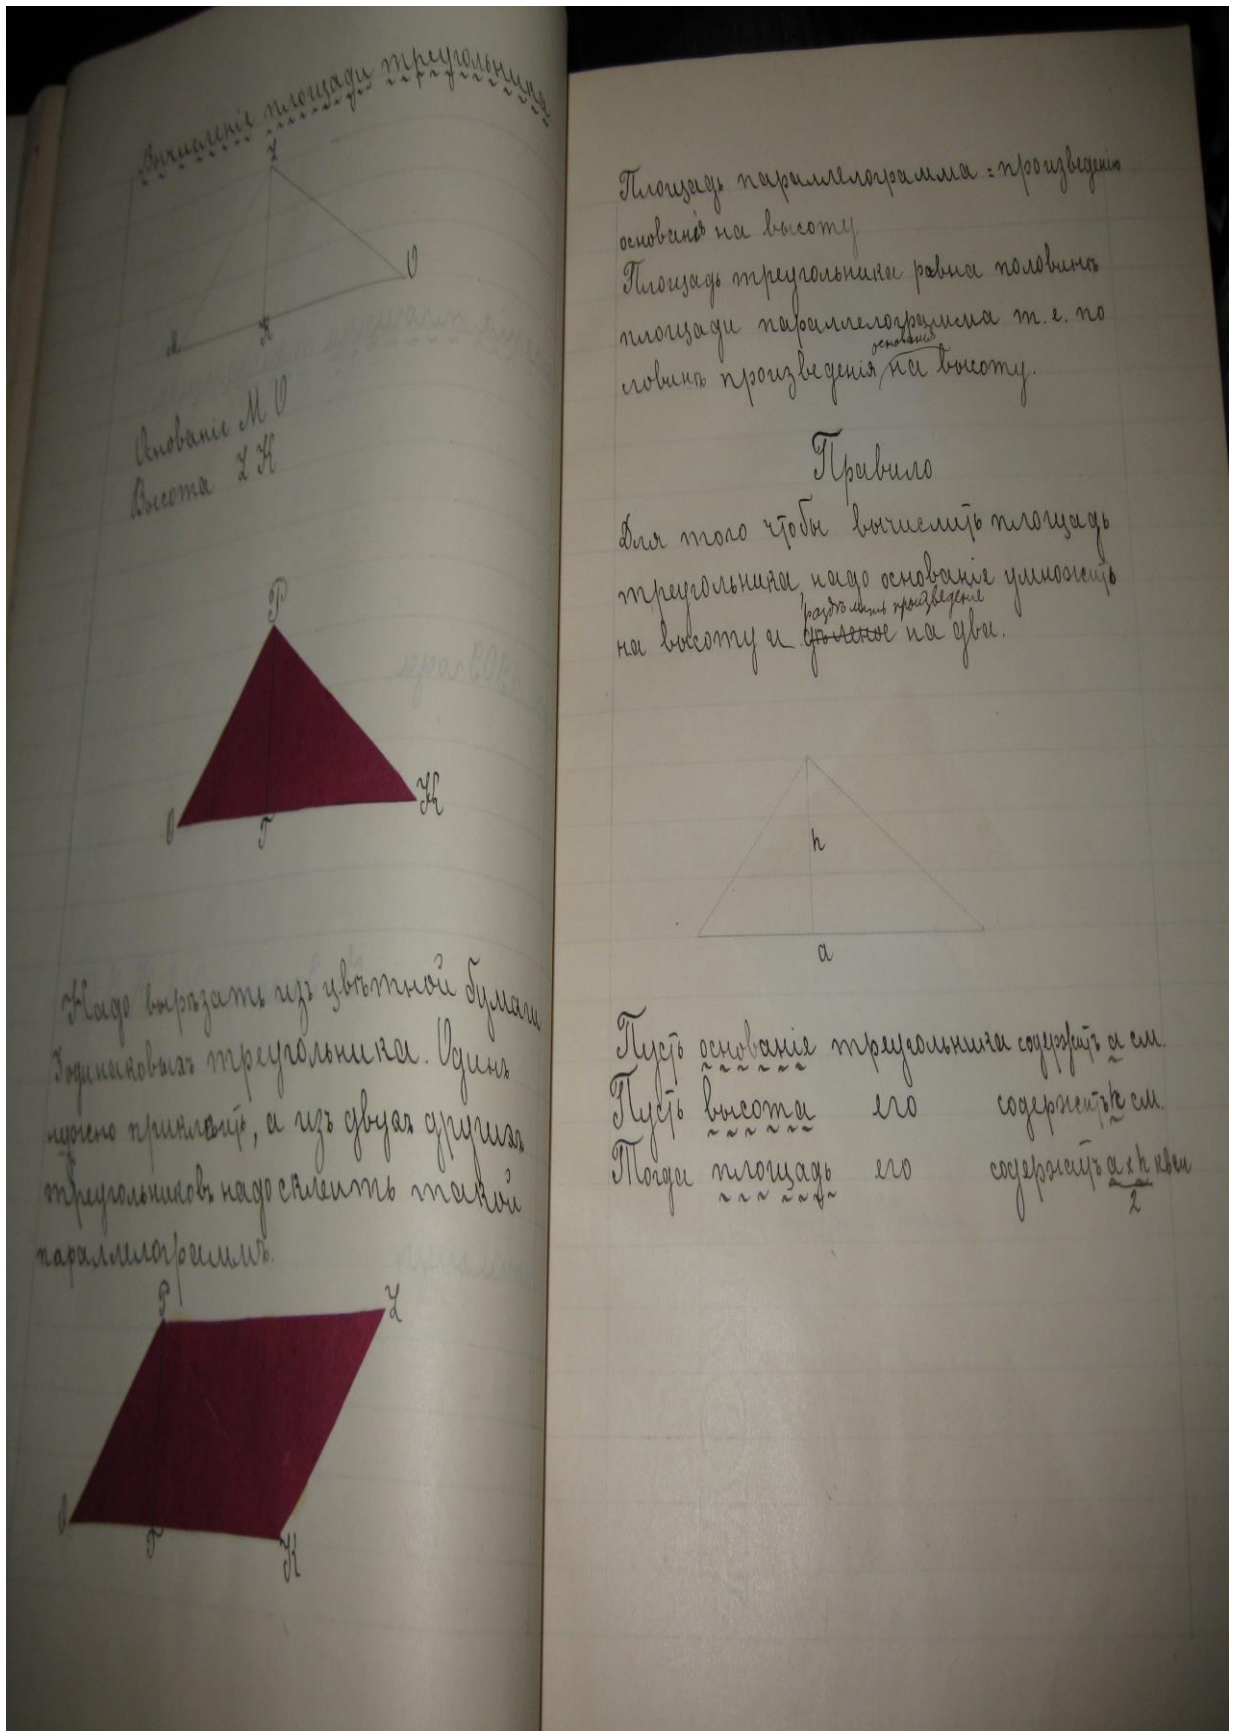 Вычисленіе площади треугольника
Z
О
М
К
Основаніе М О
Высота Z К
Р
О
Т
К
Надо вырѣзать изъ цвѣтной бумаги
3 одинаковыхъ треугольника. Одинъ
нужно приклеить, а изъ двухъ другихъ
треугольниковъ надо склеить такой
параллелограммъ.
Р
Z
О
Т
К
Площадь параллелограмма = произведенію
основанія на высоту
Площадь треугольника равна половинѣ
площади параллелограмма т. е. по
основанія
ловинѣ произведенія на высоту.
Правило
Для того чтобы вычислить площадь
треугольника, надо основаніе умножить
раздѣлить произведеніе
на высоту и на два.
h
a
Пусть основаніе треугольника содержитъ a см.
Пусть высота его содержитъ h см.
Тогда площадь его содержитъ a x h кв см
2